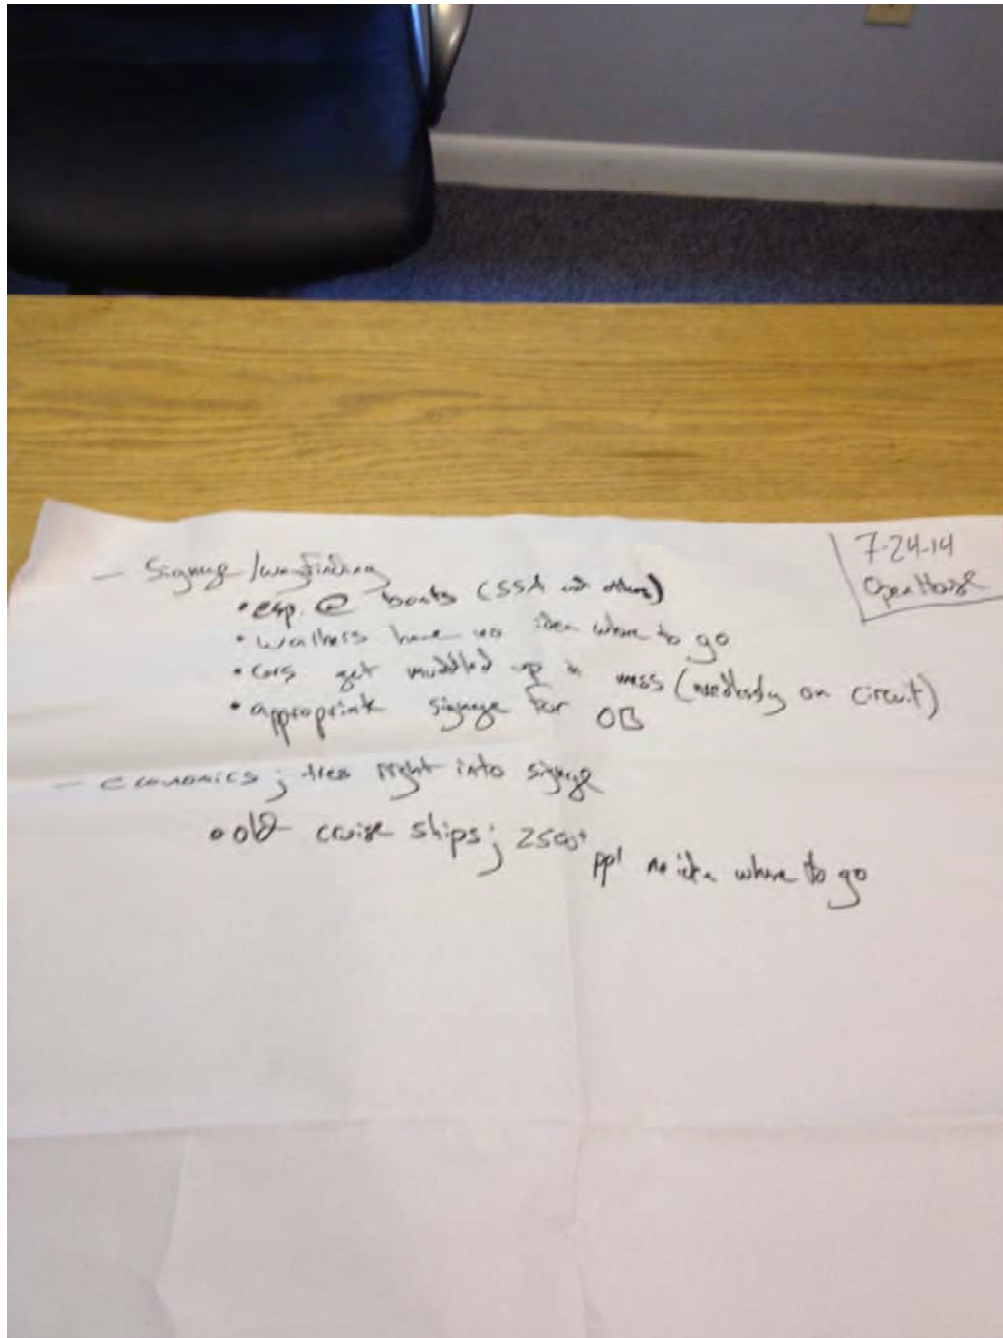 7-24-14
Open House
- Signage/wayfinding
• esp. @ boats (SSA and others)
• walkers have no idea where to go
• cars get muddled up in mess (needlessly on circuit)
• appropriate signage for OB
- economics; ties right into signage
• old cruise ships; 2500+ ppl no idea where to go